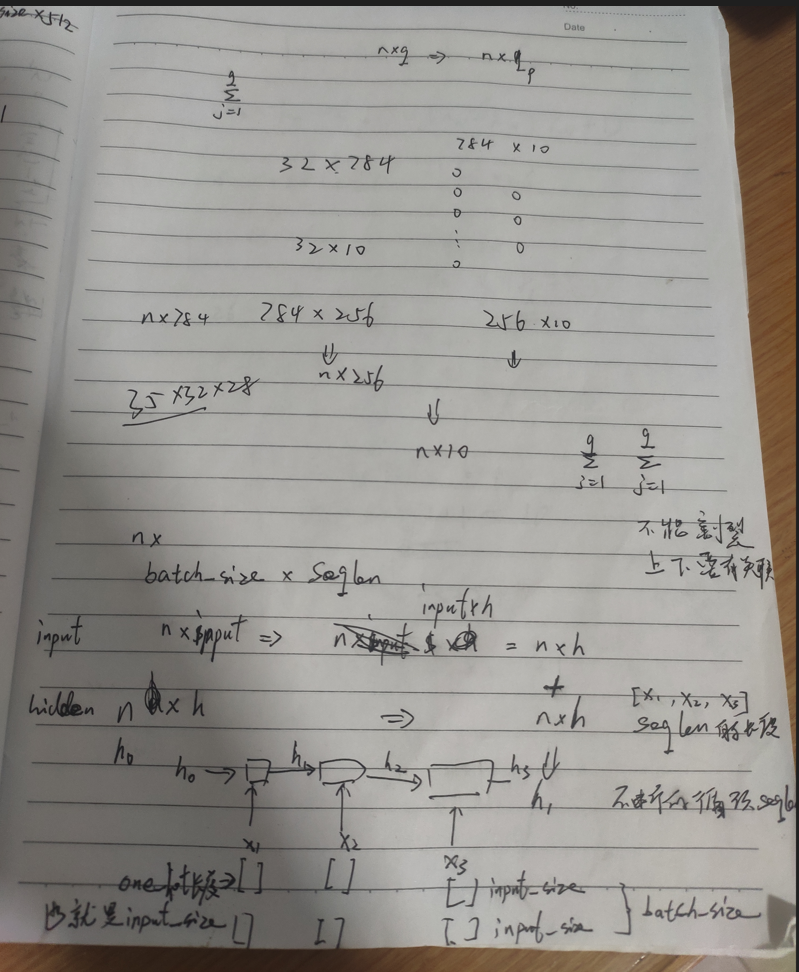 size × 512
No.
Date
n×q ⇒ n×q
q
Σ
j=1
784 × 10
32 × 784
32 × 10
n×784 784 × 256 256 ×10
⇓ ↓
n×256
35 ×32×28
⇓
n×10
q q
Σ Σ
j=1 j=1
不能割裂
上下要有关联
n×
batch_size × Seqlen
input×h
input n×input ⇒ = n×h
+
hidden n × h ⇒ n×h
[x1, x2, x3]
seqlen 的长度
h0 h0 → h1 → h2 → h3 ⇓
h1
不断的循环seql
x1 x2 x3
one hot长度⇒[ ] [ ] [ ] input_size
也就是input_size [ ] [ ] [ ] input_size } batch_size